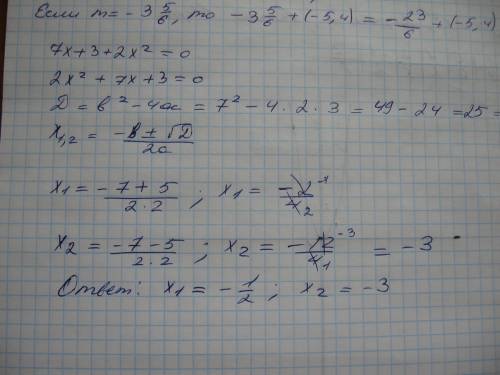 Если m = - 3 5/6, то - 3 5/6 + (-5,4) = - 23/6 + (-5,4)
7x + 3 + 2x² = 0
2x² + 7x + 3 = 0
D = b² - 4ac = 7² - 4 · 2 · 3 = 49 - 24 = 25 =
x₁,₂ = (-b ± √D)/2a
x₁ = (-7 + 5)/(2·2) ; x₁ = -2⁻¹/4₂
x₂ = (-7 - 5)/(2·2) ; x₂ = -12⁻³/4₁ = -3
Ответ: x₁ = - 1/2 ; x₂ = -3